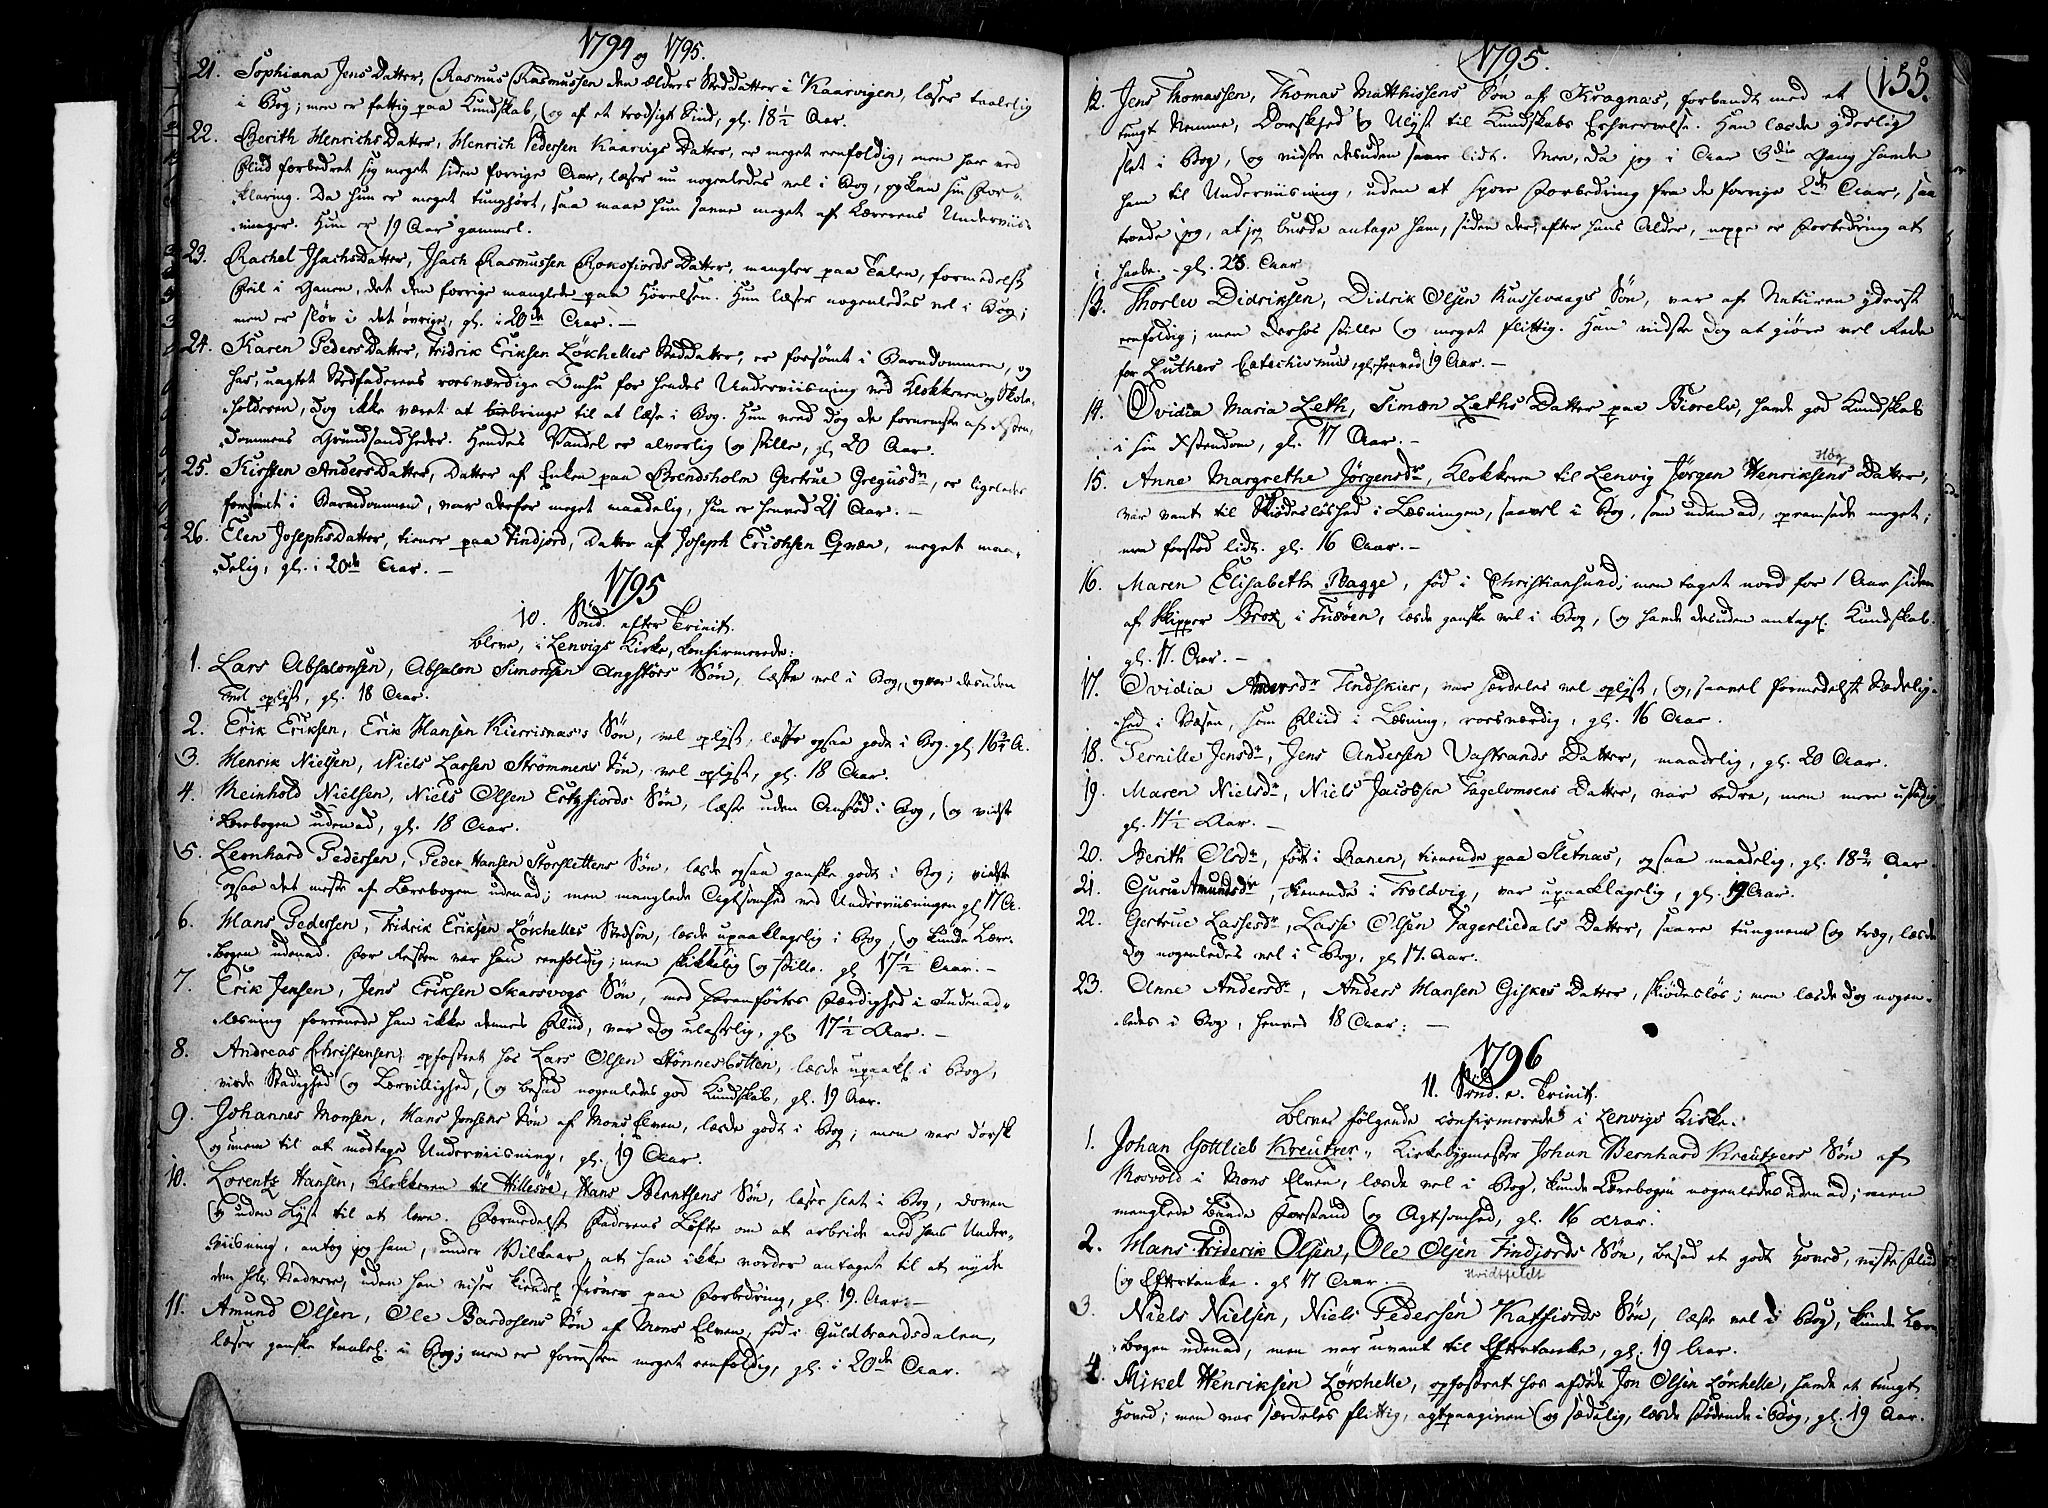 1794 og 1795.
21. Sophiana JensDatter, Rasmus Rasmussen den ældres StedDatter i Kaarvigen, læser taalelig
i Bog; men er fattig paa Kundskab, og af et trodsigt Sind, gl. 18 1/2 Aar.
22. Berith HenrichsDatter, Henrich Pedersen Kaarvigs Datter, er meget eenfoldig, men har ved
Fliid forbedret sig meget siden forrige Aar, læser nu nogenledes vel i Bog, og kan sin For-
klaring. Da hun er meget tunghørt, saa maae hun savne meget af Lærerens Underviis-
ninger. Hun er 19 Aar gammel.
23. Rachel IsachsDatter, Isach Rasmussen Roksfiords Datter, mangler paa Talen, formedelst
Feil i Ganen, det den forrige manglede paa Hørelsen. Hun læser nogenledes vel i Bog;
men er sløv i det øvrige, gl. i 20de Aar. —
24. Karen PedersDatter, Fridrik Eriksen Løkhelles StedDatter, er forsømt i Barndommen, og
har, uagtet Stedfaderens roesværdige Omhu for hendes Underviisning ved Klokkeren og Skole-
holderen, dog ikke været at bringe til at læse i Bog. Hun veed dog de fornemste af Xsten-
dommens Grundsandheder. Hendes Vandel er alvorlig og stille, gl. 20 Aar.
25. Kirsten AndersDatter, Datter af Enken paa Grendsholm Gertrue Gregusdr, er ligeledes
forsømt i Barndommen, var derfor meget maadelig, hun er henved 21 Aar. —
26. Elen JosephsDatter, tiener paa Findjord, Datter af Joseph Erichsen Qvæn, meget maa-
delig, gl. i 20de Aar. —
1795
10. Sønd. efter Trinit.
bleve, i Lenvigs Kirke, Confirmerede:
1. Lars Absalonsen, Absalon Simonsen Angstørs Søn, læste vel i Bog, og var desuden
vel oplyst, gl. 18 Aar.
2. Erik Eriksen, Erik Hansen Kierrisnæs's Søn, vel oplyst, læste ogsaa godt i Bog. gl. 16 3/4 A.
3. Henrik Nielsen, Niels Larsen Strømmens Søn, vel oplyst, gl. 18 Aar.
4. Meinhold Nielsen, Niels Olsen Eskefiords Søn, læste uden Anstød i Bog, og vidste
Lærebogen udenad, gl. 18 Aar.
5. Leonhard Pedersen, Peder Hansen Storslettens Søn, læste ogsaa ganske godt i Bog; vidste
ogsaa det meste af Lærebogen udenad; men manglede Agtsomhed ved Underviisningen gl. 17 A.
6. Hans Pedersen, Fridrik Eriksen Løkhelles Stedsøn, læste upaaklagelig i Bog, og kunde Lære-
bogen udenad. For Resten var han eenfoldig; men skikkelig og stille. gl. 17 1/2 Aar. —
7. Erik Jensen, Jens Eriksen Skarsvogs Søn, med Færdighed i Indenad-
læsning foreenede han ikke dennes Fliid, var dog ulastelig, gl. 17 1/2 Aar. —
8. Andreas Christensen, opfostret hos Lars Olsen Stønnesbotten, læste upaakl. i Bog,
viiste Stadighed og Lærvillighed, og besad nogenledes god Kundskab, gl. 19 Aar.
9. Johannes Monsen, Hans Jonsens Søn af Mons Elven, læste godt i Bog; men var dorsk
og uvem til at modtage Underviisning, gl. 19 Aar.
10. Lorentz Hansen, Klokkeren til Hillesøe, Hans Berntsens Søn, læser slet i Bog, doven
og uden Lyst til at lære. Formedelst Faderens Løfte om at arbeide med hans Under-
viisning, antog jeg ham, under Vilkaar, at han ikke vorder antaget til at nyde
den hel. Nadvere, uden han viser kiendel. Prøver paa Forbedring, gl. 19. Aar. —
11. Amund Olsen, Ole Bardosens Søn af Mons Elven, fød i Guldbrandsdalen,
læser ganske taalel. i Bog; men er forresten meget eenfoldig, gl. i 20de Aar.
1795.
155.
12. Jens Thomassen, Thomas Matthissens Søn af Kragnæs, forbandt med et
tungt Nemme, Dorskhed og Ulyst til Kundskabs Erhvervelse. Han læste yderlig
slet i Bog, og vidste desuden saare lidt. Men, da jeg i Aar 3die Gang havde
ham til Underviisning, uden at spore Forbedring fra de forrige 2de Aar, saa
troede jeg, at jeg burde antage ham, siden der, efter hans Alder, neppe er Forbedring at
haabe. gl. 23. Aar
13. Thorlev Didriksen, Didrik Olsen Kussevaags Søn, var af Naturen yderst
eenfoldig; men derhos stille og meget flittig. Han vidste dog at giøre vel Rede
for Luthers Catechismus, gl. henved 19 Aar. —
14. Ovidia Maria Leth, Simæn Leths Datter paa Biorelv, havde god Kundskab
i sin Xstendom, gl. 17 Aar. —
Høy
15. Anne Margrethe Jørgensdr, Klokkeren til Lenvig Jørgen Henriksens Datter,
var vant til Skiødesløshed i Læsningen, saavel i Bog, som udenad, opramsede meget;
men forstod lidt. gl. 16 Aar. —
16. Maren Elisabeth Bagge, fød i Christiansund; men taget nord for 1 Aar siden
af Skipper Brox i Tusøen, læste ganske vel i Bog, og havde desuden antagel. Kundskab.
gl. 17. Aar. —
17. Ovidia Andersdr Findskier, var særdeles vel oplyst, og, saavel formedelst Sædelig-
hed i Væsen, som Fliid i Læsning, roesværdig, gl. 16 Aar.
18. Pernille Jensdr, Jens Andersen Vastrands Datter, maadelig, gl. 20 Aar.
19. Maren Nielsdr, Niels Jacobsen Fagelvmoens Datter, var bedre, men mere ustadig
gl. 17 1/2 Aar. —
20. Berith Olsdr, født i Ranen, tienende paa Sletnæs, ogsaa maadelig, gl. 18 3/4 Aar.
21. Guru Amundsdr, tienende i Troldvig, var upaaklagelig, gl. 19 Aar.
22. Gertrue Lassesdr, Lasse Olsen Fagerliedals Datter, saare tungnem og træg, læste
dog nogenledes vel i Bog, gl. 17. Aar.
23. Anne Andersdr, Anders Hansen Giskes Datter, skiødesløs; men læste dog nogen-
ledes i Bog, henved 18 Aar: —
1796
11. Sønd. e. Trinit.
bleve følgende Confirmerede i Lenvigs Kirke:
1. Johan Gottlieb Kreutzer, Kirkebygmester Johan Bernhard Kreutzers Søn af
Moevold i Mons Elven, læste vel i Bog, kunde Lærebogen nogenledes udenad; men
manglede baade Forstand og Agtsomhed, gl. 16 Aar.
2. Hans Friderik Olsen, Ole Olsen Findjords Søn, besad et godt Hoved, viste Fliid
Hvidtfeldt
og Eftertanke. gl. 17 Aar. —
3. Niels Nielsen, Niels Pedersen Katfiords Søn, læste vel i Bog, kunde Lære-
bogen udenad, men var uvant til Eftertanke, gl. 19 Aar.
4. Mikel Henriksen Løkhelle, opfostret hos afdøde Jon Olsen Løkhelle, havde et tungt
Hoved; men var særdeles flittig, agtpaagiven og sædelig, læste stødende i Bog, gl. 19 Aar.